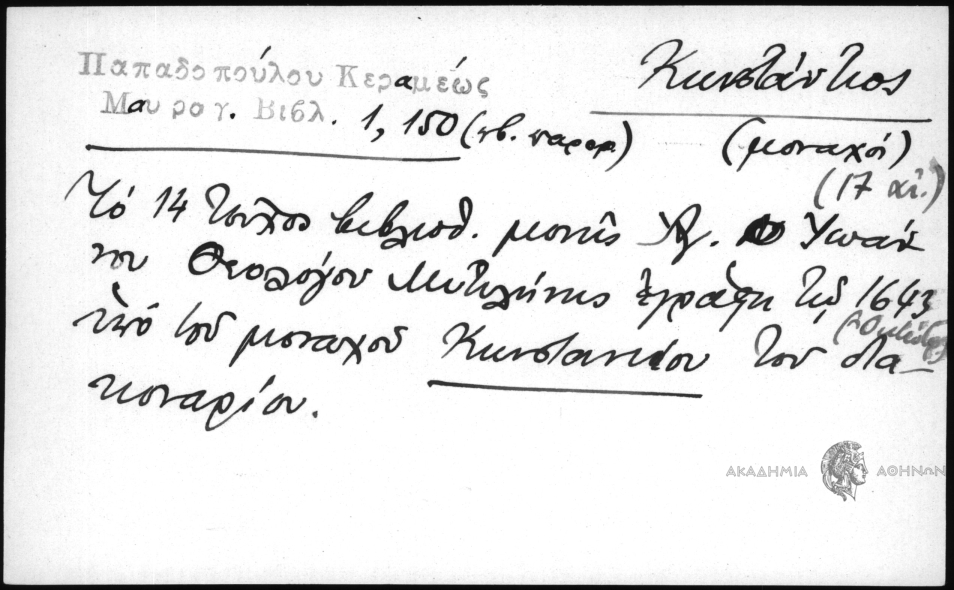 Παπαδοπούλου Κεραμέως
Μαυρογ. Βιβλ. 1, 150
Κωνστάντιος
(μοναχοί)
(17 αἰ.)
Τό 14 τεῦχος βιβλιοθ. μονῆς Ἁγ. Ἰωάν
νου Θεολόγου Μυτιλήνης ἐγράφη τῷ 1643
ὑπό τοῦ μοναχοῦ Κωνσταντίου τοῦ δια-
κοναρίου.
ΑΚΑΔΗΜΙΑ ΑΘΗΝΩΝ